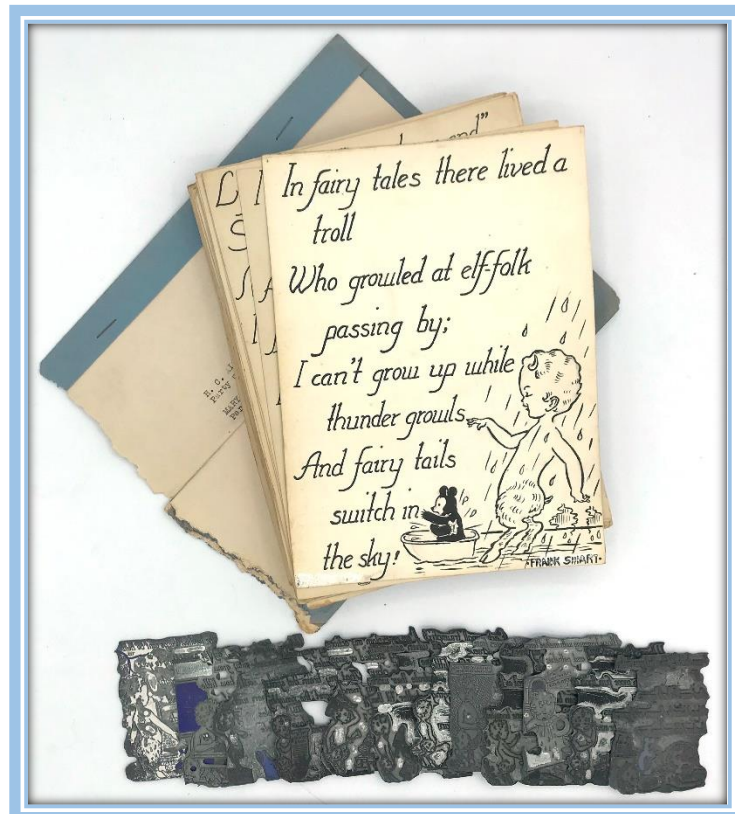 and"
In fairy tales there lived a
troll
Who growled at elf-folk
passing by;
I can't grow up while
thunder growls
And fairy tails
switch in
the sky!
·FRANK SMART·